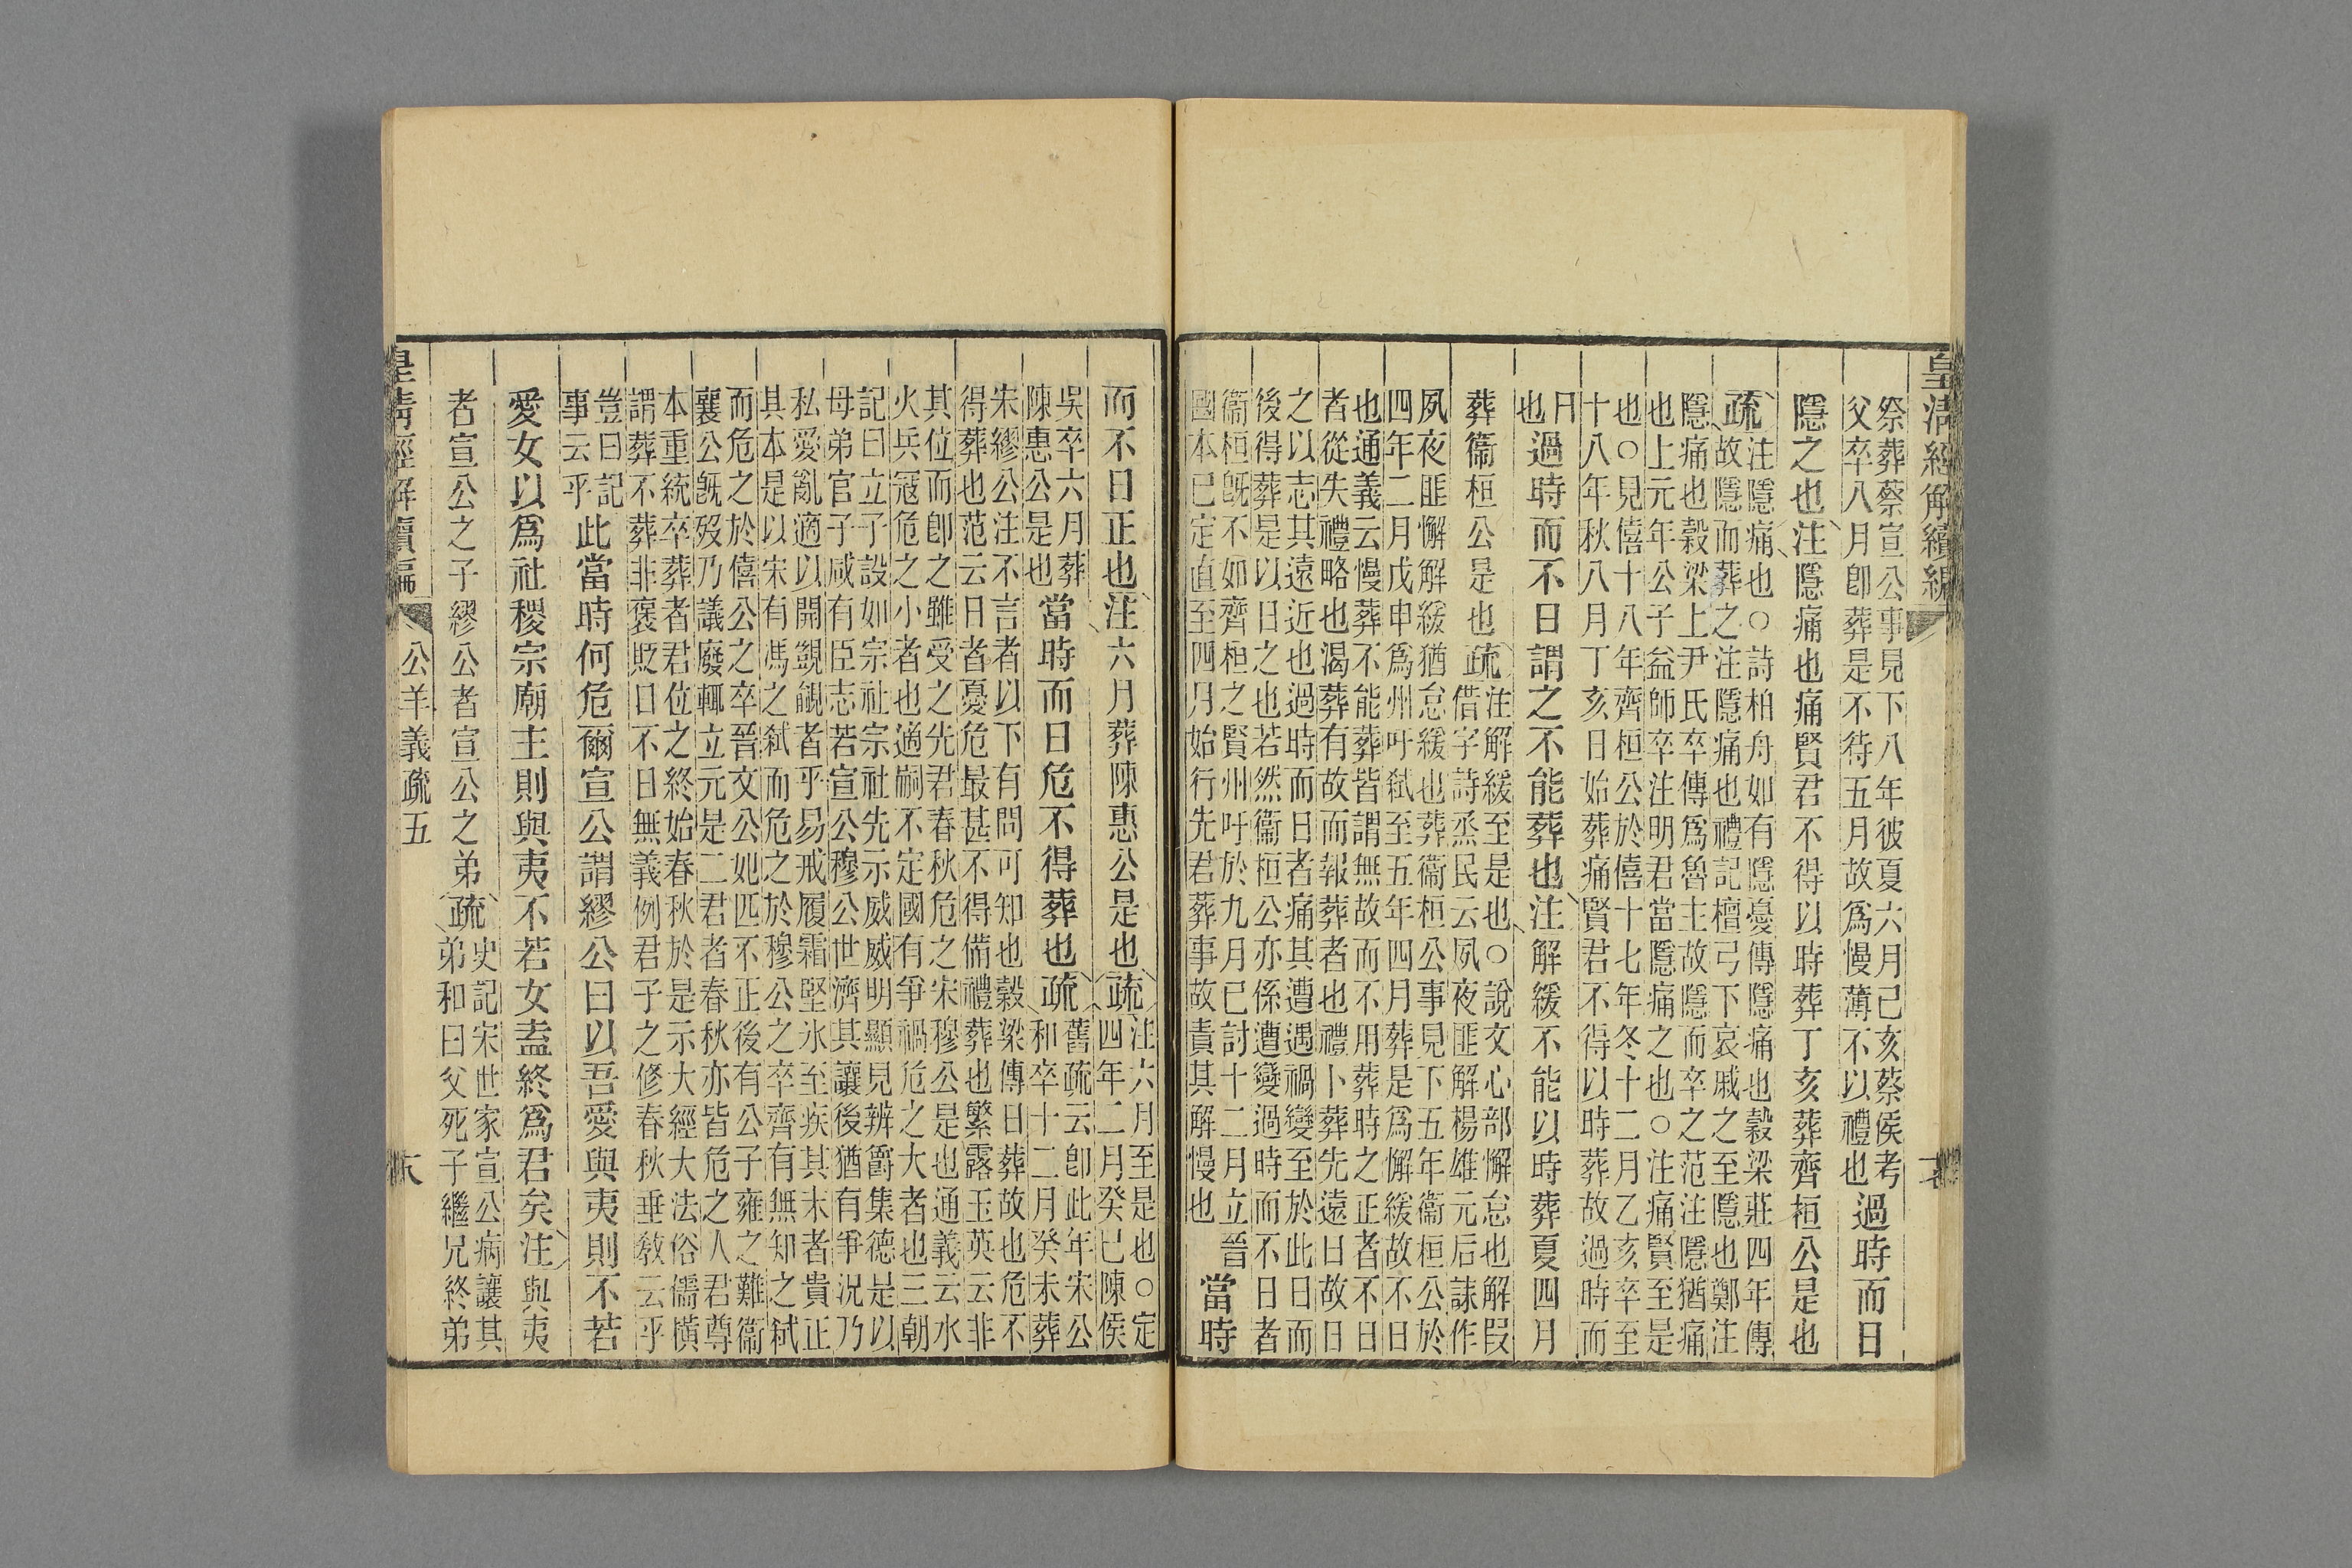 皇淸經解續編
祭葬蔡宣公事見下八年彼夏六月己亥蔡侯考
父卒八月卽葬是不待五月故爲慢薄不以禮也
過時而日
隱之也注隱痛也痛賢君不得以時葬丁亥葬齊桓公是也
疏
注隱痛也○詩柏舟如有隱憂傳隱痛也穀梁莊四年傳
故隱而葬之注隱痛也禮記檀弓下哀戚之至隱也鄭注
隱痛也穀梁上尹氏卒傳爲魯主故隱而卒之范注隱猶痛
也上元年公子益師卒注明君當隱痛之也○注痛賢至是
也○見僖十八年齊桓公於僖十七年冬十二月乙亥卒至
十八年秋八月丁亥日始葬痛賢君不得以時葬故過時而
日
也
過時而不日謂之不能葬也注解緩不能以時葬夏四月
葬衞桓公是也疏
注解緩至是也○說文心部懈怠也解叚
借字詩烝民云夙夜匪解楊雄元后誄作
夙夜匪懈解緩猶怠緩也葬衞桓公事見下五年衞桓公於
四年二月戊申爲州吁弒至五年四月葬是爲懈緩故不日
也通義云慢葬不能葬皆謂無故而不用葬時之正者不日
者從失禮略也渴葬有故而報葬者也禮卜葬先遠日故日
之以志其遠近也過時而日者痛其遭遇禍變至於此日而
後得葬是以日之也若然衞桓公亦係遭變過時而不日者
衞桓旣不如齊桓之賢州吁於九月已討十二月立晉
國本已定直至四月始行先君葬事故責其解慢也
當時
而不日正也注六月葬陳惠公是也疏
注六月至是也○定
四年二月癸巳陳侯
吳卒六月葬
陳惠公是也
當時而日危不得葬也疏
舊疏云卽此年宋公
和卒十二月癸未葬
宋繆公注不言者以下有問可知也穀梁傳日葬故也危不
得葬也范云日者憂危最甚不得備禮葬也繁露玉英云非
其位而卽之雖受之先君春秋危之宋穆公是也通義云水
火兵冦危之小者也適嗣不定國有爭禍危之大者也三朝
記曰立子設如宗社宗社先示威威明顯見辨爵集德是以
母弟官子咸有臣志若宣公穆公世濟其讓後猶有爭況乃
私愛亂適以開覬覦者乎易戒履霜堅氷至疾其末者貴正
其本是以宋有馮之弒而危之於穆公之卒齊有無知之弒
而危之於僖公之卒晉文公妣匹不正後有公子雍之難衞
襄公旣歿乃議廢輒立元是二君者春秋亦皆危之人君尊
本重統卒葬者君位之終始春秋於是示大經大法俗儒橫
謂葬不葬非褒貶日不日無義例君子之修春秋垂敎云乎
豈曰記
事云乎
此當時何危爾宣公謂繆公曰以吾愛與夷則不若
愛女以爲社稷宗廟主則與夷不若女盍終爲君矣注與夷
者宣公之子繆公者宣公之弟疏
史記宋世家宣公病讓其
弟和曰父死子繼兄終弟
皇淸經解續編
公羊義疏五